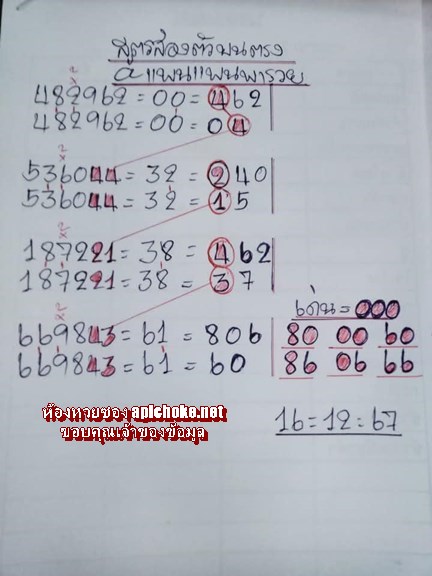 สูตรสองตัวบนตรง
แฟนแฟนพารวย
x2
482962 = 00 = 462
482962 = 00 = 04
x2
536044 = 32 = 240
536044 = 32 = 15
x2
187221 = 38 = 462
187221 = 38 = 37
x2
669843 = 61 = 806
669843 = 61 = 60
เด่น = 000
80 00 60
86 06 66
16 = 12 = 67
ห้องหวยซอง apichoke.net
ขอบคุณเจ้าของข้อมูล